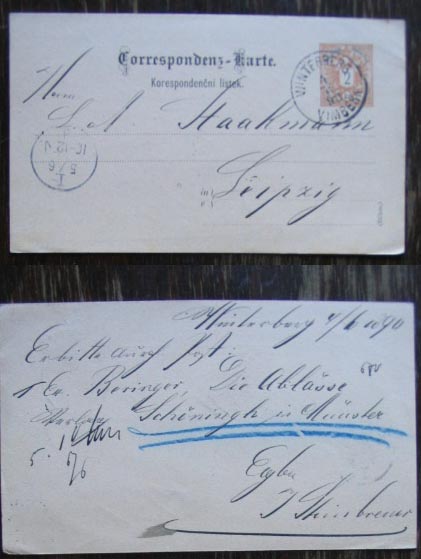 Correspondenz-Karte.
Korespondenční lístek.
2
WINTERBERG
VIMPERK
Herrn
L. A. Staakmann
Leipzig
5 7 6
10-12 V
Winterberg 4/6 1890
Erbitte durch Post:
1 Ex. Beringer, Die Ablässe
Schöningh in Münster
5.
6/6
J Steinbrener